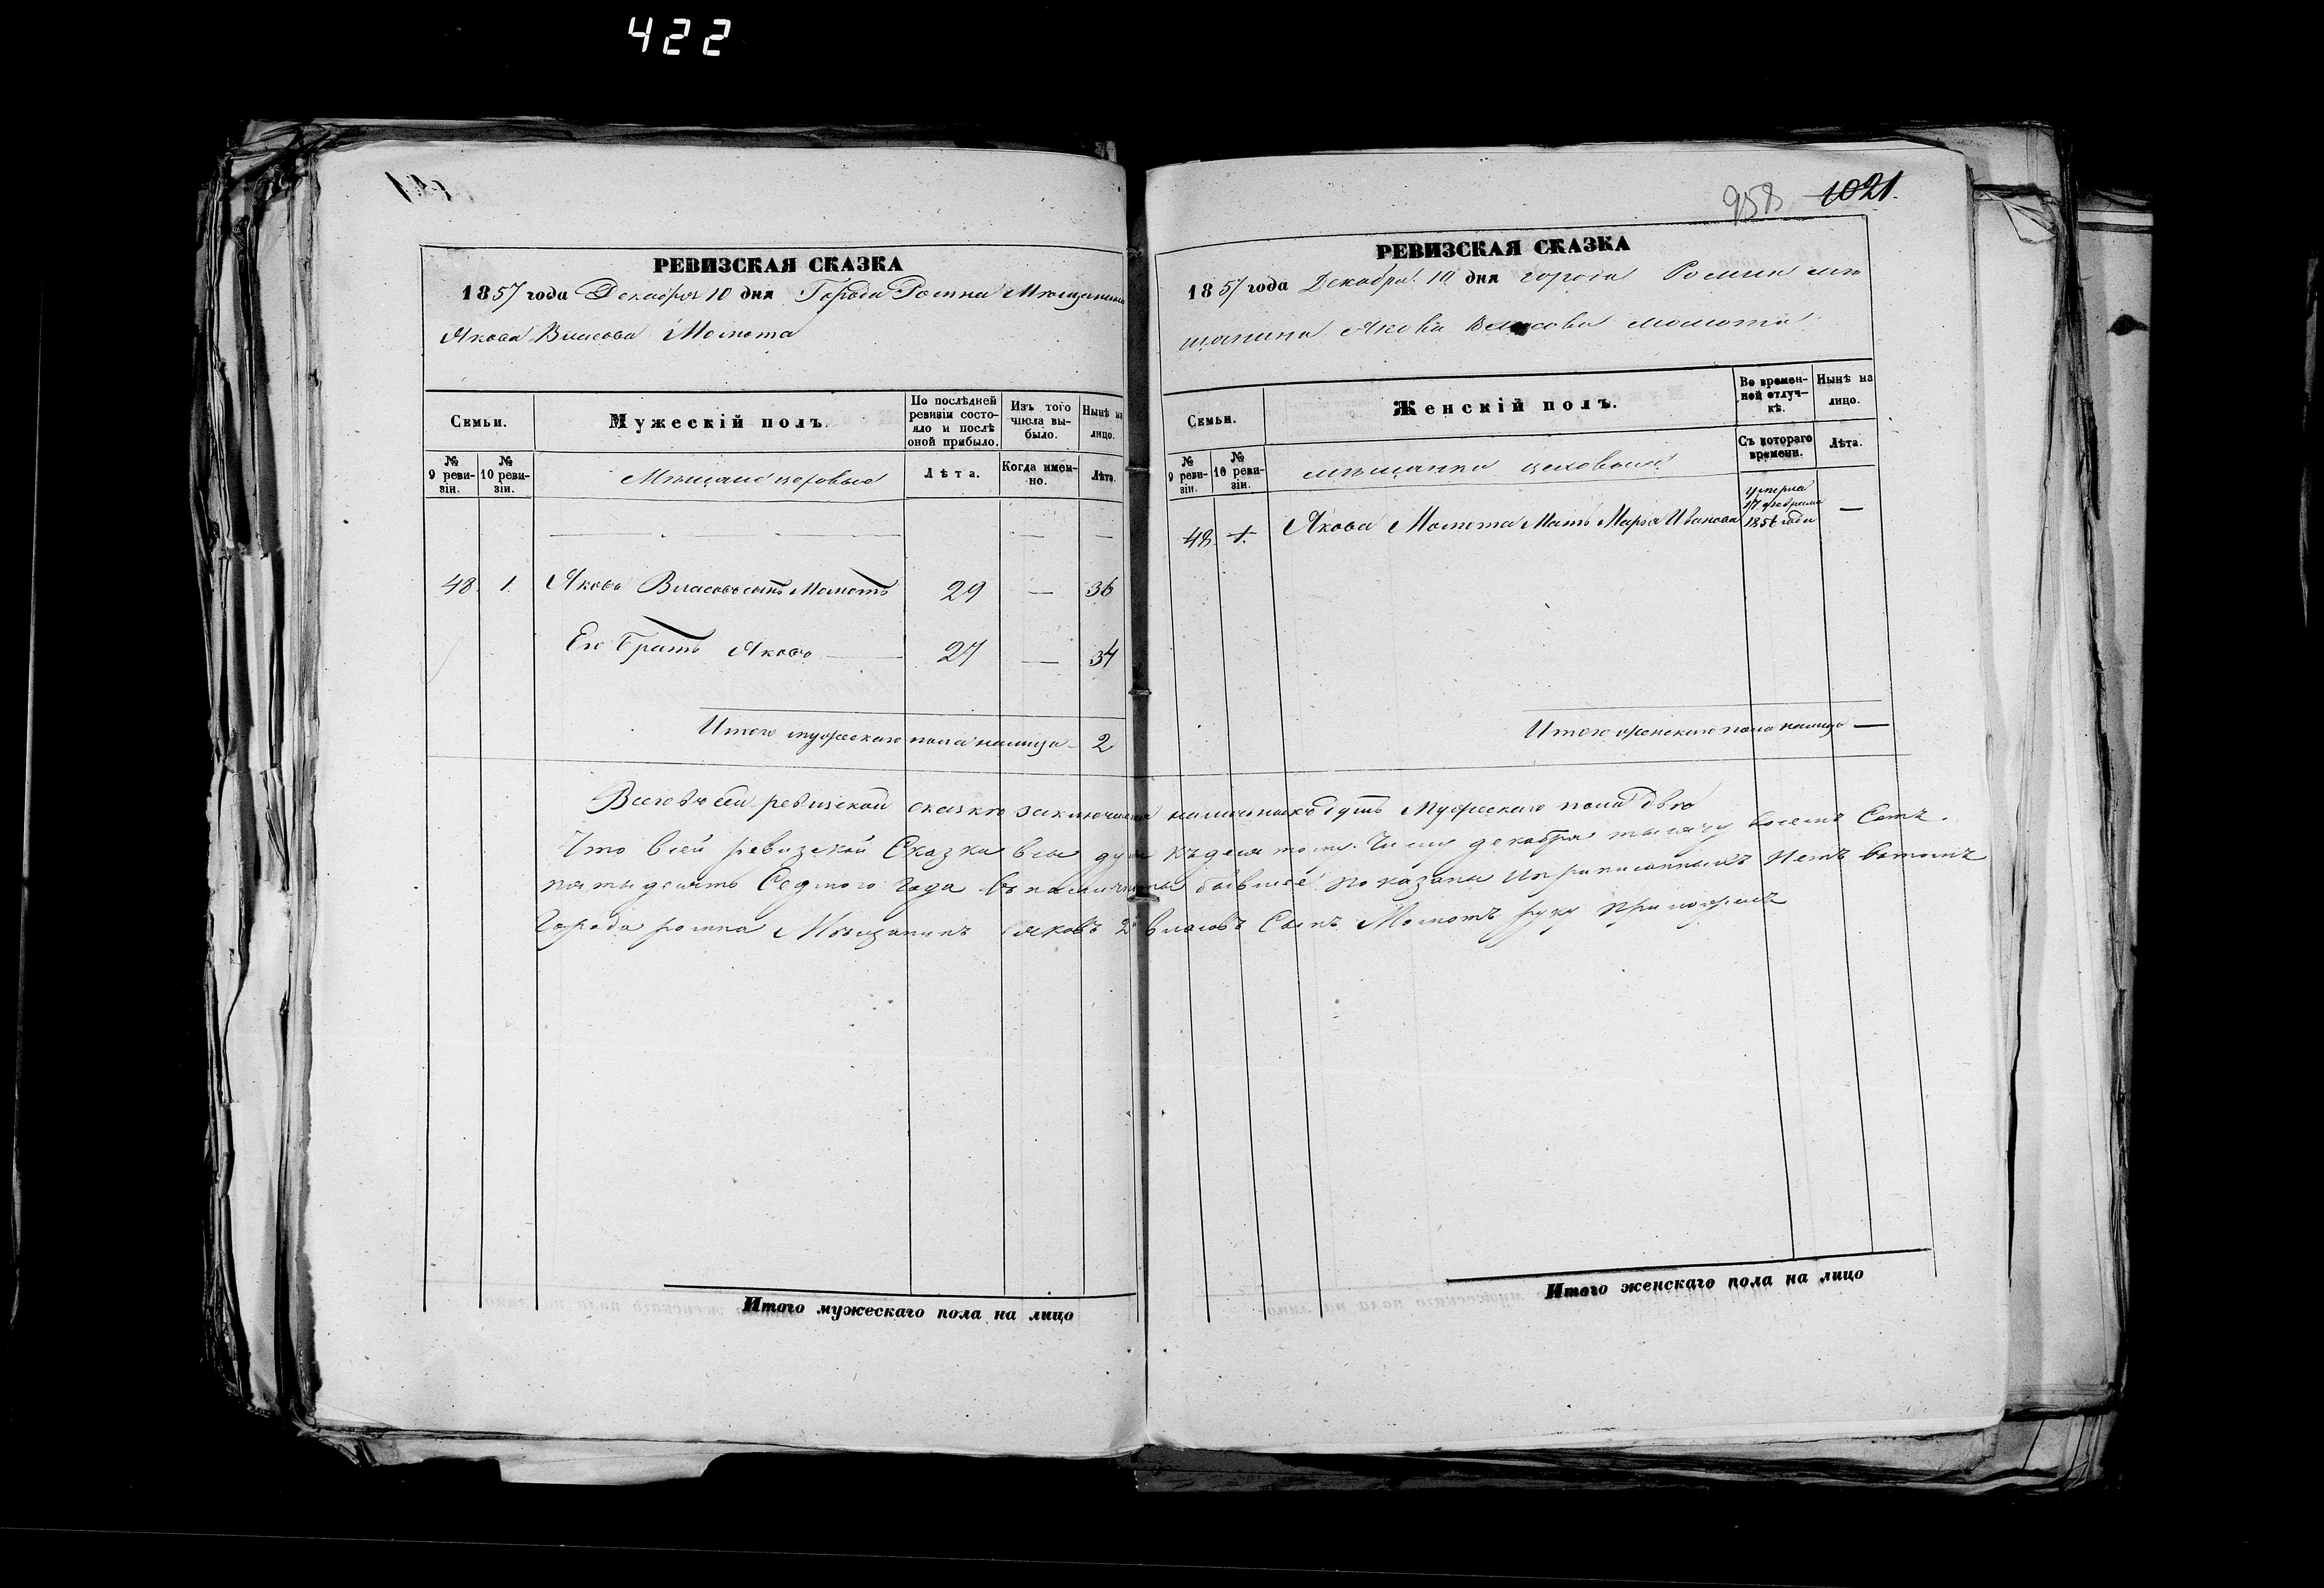 422
958 1021.
РЕВИЗСКАЯ СКАЗКА
1857 года Декабря 10 дня Города Ромна Мѣщанина
Якова Власова Момота
Семьи.
Мужескій полъ.
По послѣдней ревизіи состояло и послѣ оной прибыло.
Изъ того числа выбыло.
Нынѣ на лицо.
№ 9 ревизіи.
№ 10 ревизіи.
Мѣщане цеховые
Лѣта.
Когда именно.
Лѣта.
48. 1. Яковъ Власовъ сынъ Момотъ 29 — 36
Его братъ Яковъ 27 — 34
Итого мужескаго пола налицо 2
РЕВИЗСКАЯ СКАЗКА
1857 года Декабря 10 дня города Ромна мѣ
щанина Якова Власова Момота
Семьи.
Женскій полъ.
Во временной отлучкѣ.
Нынѣ на лицо.
№ 9 ревизіи.
№ 10 ревизіи.
мѣщанки цеховыя
Съ котораго времени.
Лѣта.
48. 1. Якова Момота Мать Марья Иванова умерла 17 февраля 1856 года —
Итого женскаго пола налицо —
Всего въ сей ревизской сказкѣ заключается наличныхъ душъ Мужескаго пола двѣ
Что всей ревизской Сказки все души къ десятому Числу декабря тысячу восемъ Сотъ
пятьдесятъ Седмого Года бывшее показаны Нетъ Вътомъ
Города ромна Мѣщанинъ яковъ 2й власовъ Сынъ Момотъ руку приложилъ
Итого мужескаго пола на лицо
Итого женскаго пола на лицо